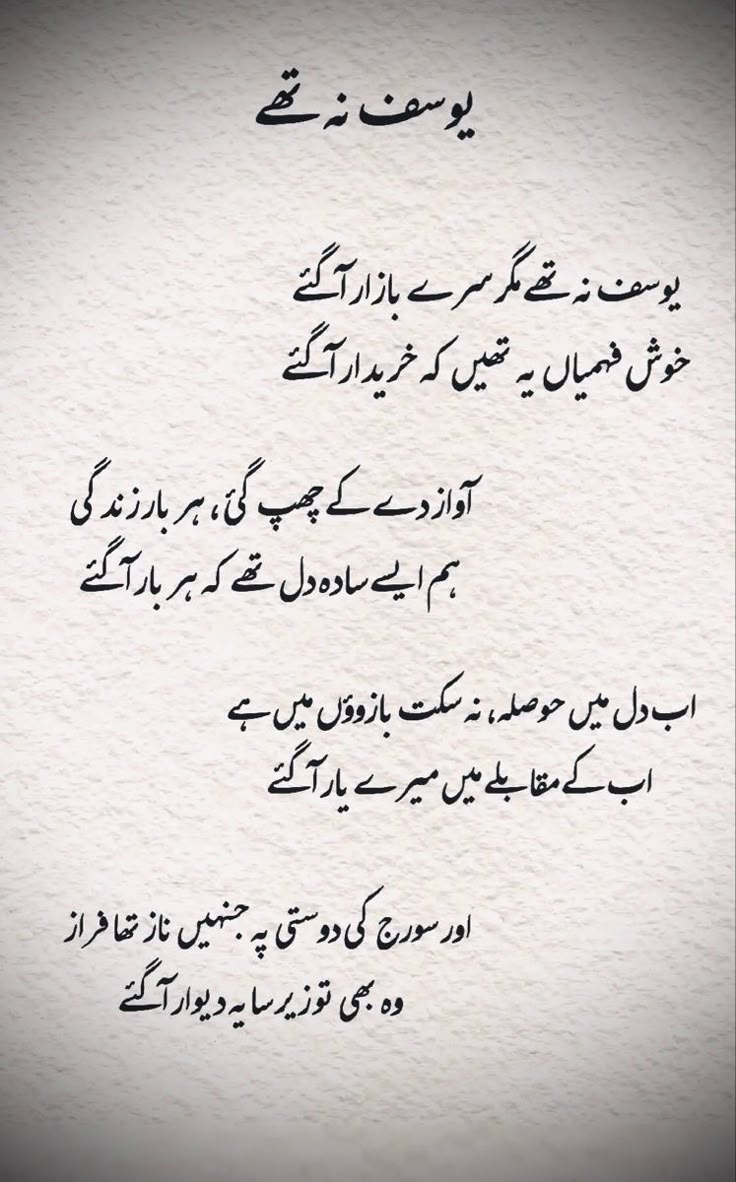 یوسف نہ تھے
یوسف نہ تھے مگر سرے بازار آ گئے
خوش فہمیاں یہ تھیں کہ خریدار آ گئے
آواز دے کے چھپ گئ، ہر بار زندگی
ہم ایسے سادہ دل تھے کہ ہر بار آ گئے
اب دل میں حوصلہ، نہ سکت بازوؤں میں ہے
اب کے مقابلے میں میرے یار آ گئے
اور سورج کی دوستی پہ جنہیں ناز تھا فراز
وہ بھی تو زیر سایہ دیوار آ گئے